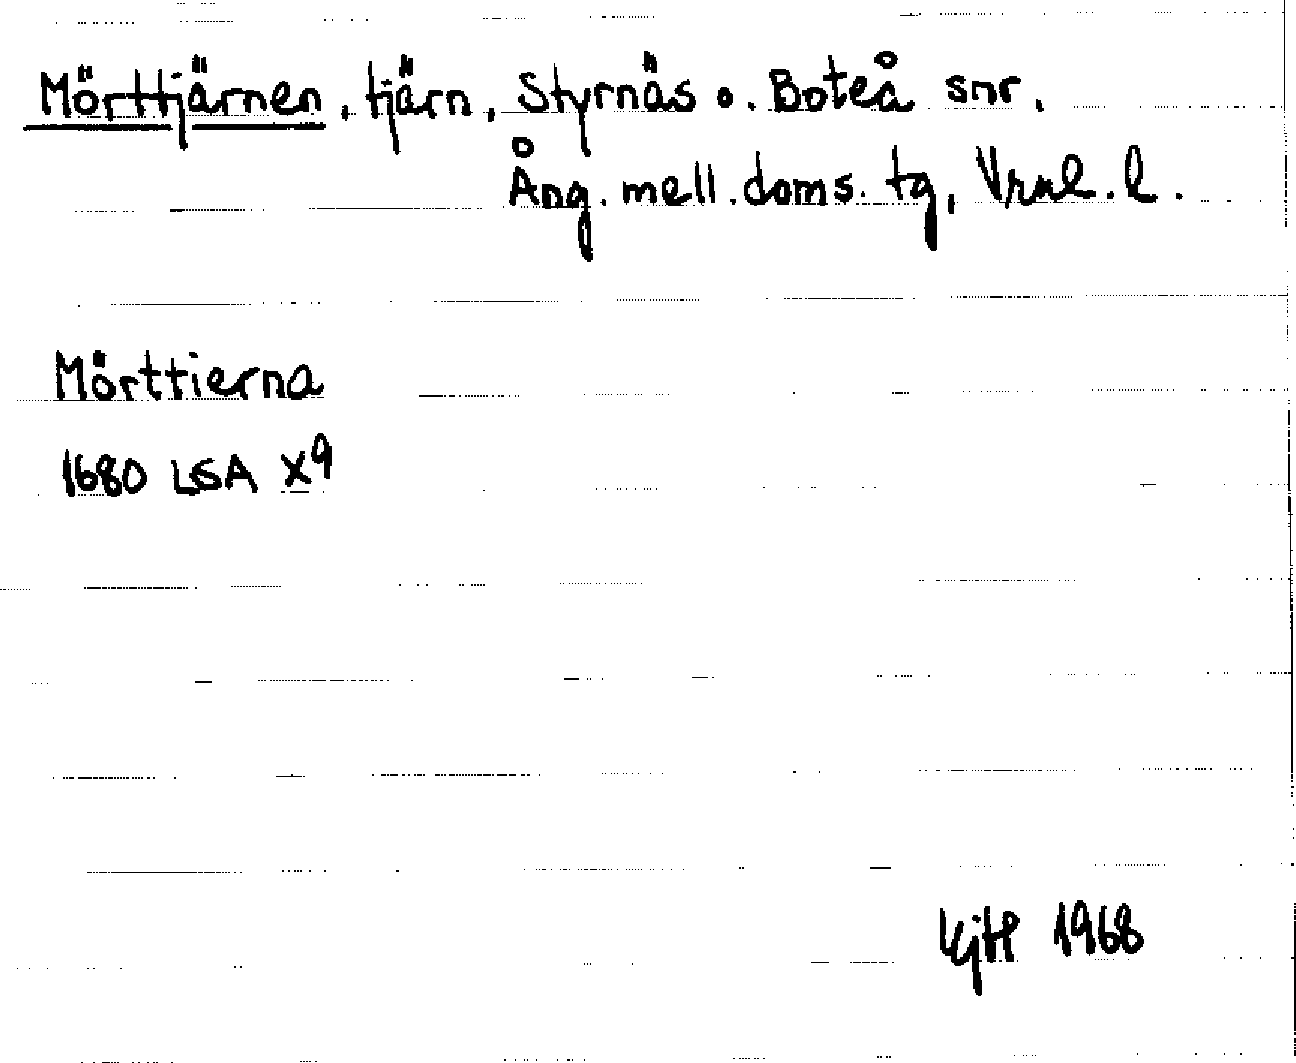 Mörttjärnen, tjärn, Styrnäs o. Boteå snr.
Ång. mell. doms. tg, Vrnl. l.
Mörttierna
1680 LSA X9
1968